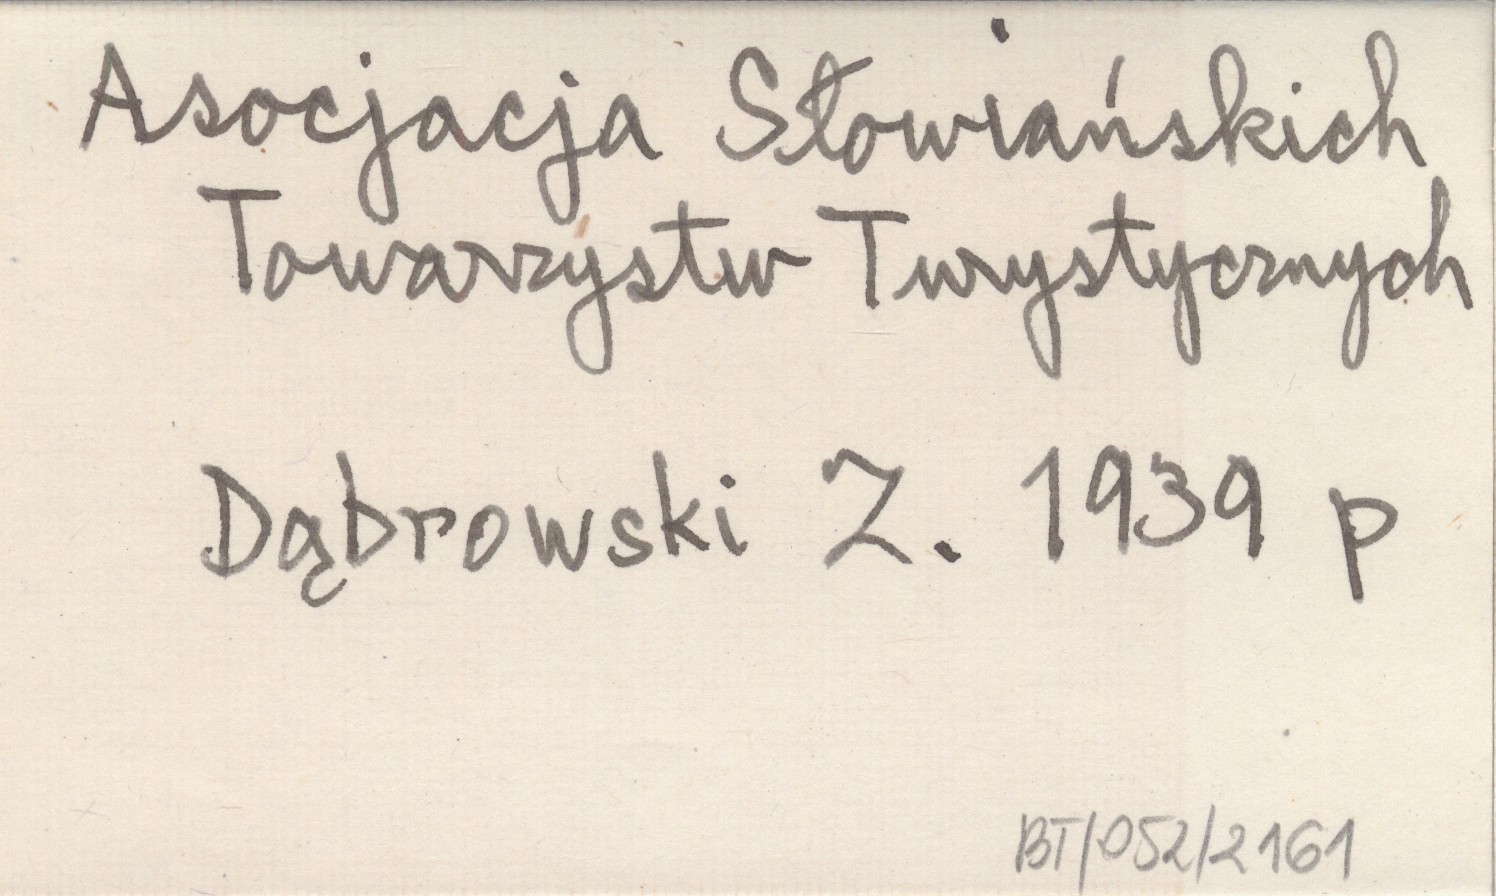 Asocjacja Słowiańskich
Towarzystw Turystycznych
Dąbrowski Z. 1939 p
BT/052/2161